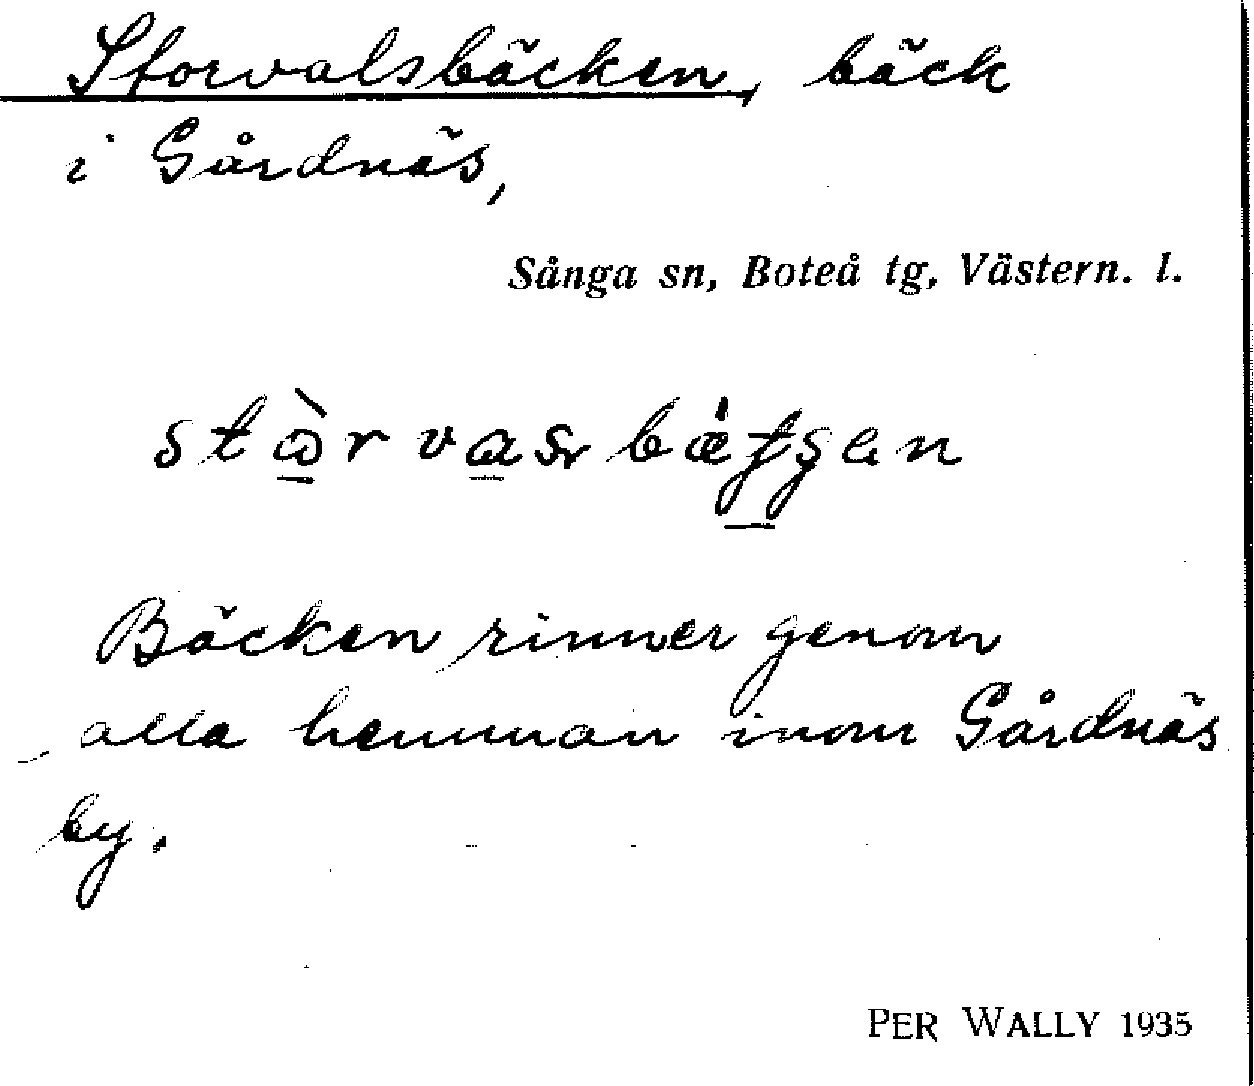 Storvalsbäcken, bäck
i Gårdnäs,
Sånga sn, Boteå tg, Västern. l.
Bäcken rinner genom
alla hemman inom Gårdnäs
by.
PER WALLY 1935